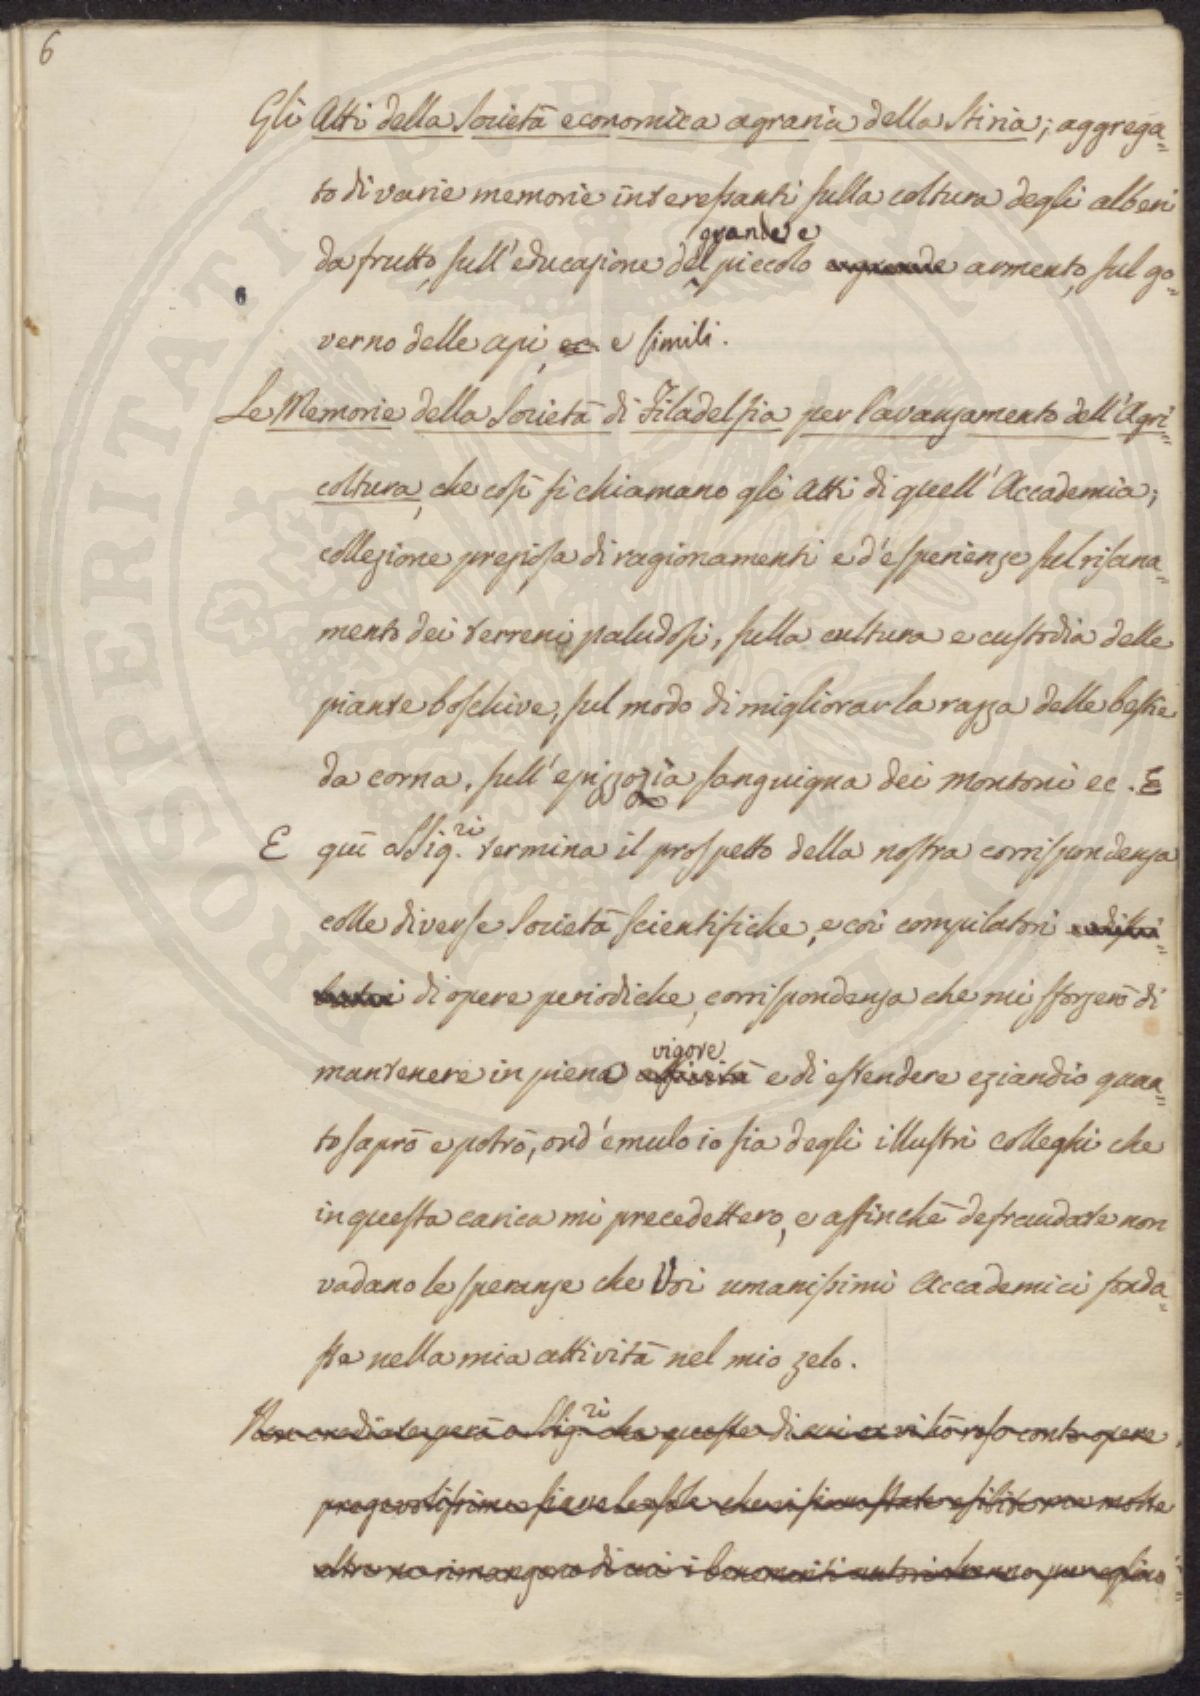 6
Gli Atti della Società economica agraria della Stiria; aggrega=
to di varie memorie interessanti sulla coltura degli alberi
grande e
da frutto, sull'educazione del piccolo e grande armento, sul go=
6
verno delle api, ec. e simili.
Le Memorie della Società di Filadelfia per l'avanzamento dell'Agri=
coltura, che così si chiamano gli Atti di quell'Accademia;
collezione preziosa di ragionamenti e d'esperienze sul risana=
mento dei terreni paludosi, sulla cultura e custodia delle
piante boschive, sul modo di migliorar la razza delle bestie
da corna, sull'epizzozia sanguigna dei montoni ec. E
E quì o Sig.ri termina il prospetto della nostra corrispondenza
colle diverse Società scientifiche, e coi compilatori
di opere periodiche, corrispondenza che mi sforzerò di
vigore
mantenere in piena attività e di estendere eziandio quan=
to saprò e potrò, ond'emulo io sia degli illustri Colleghi che
in questa carica mi precedettero, e affinchè defraudate non
vadano le speranze che Voi umanissimi Accademici fonda=
ste nella mia attività nel mio zelo.
Non crediate però o Sig.ri che queste di cui vi hò reso conto opere
pregevolissime siano le sole che vi siano state esibite molte
altre ne rimangono di cui i benemeriti autori hanno pur eglino